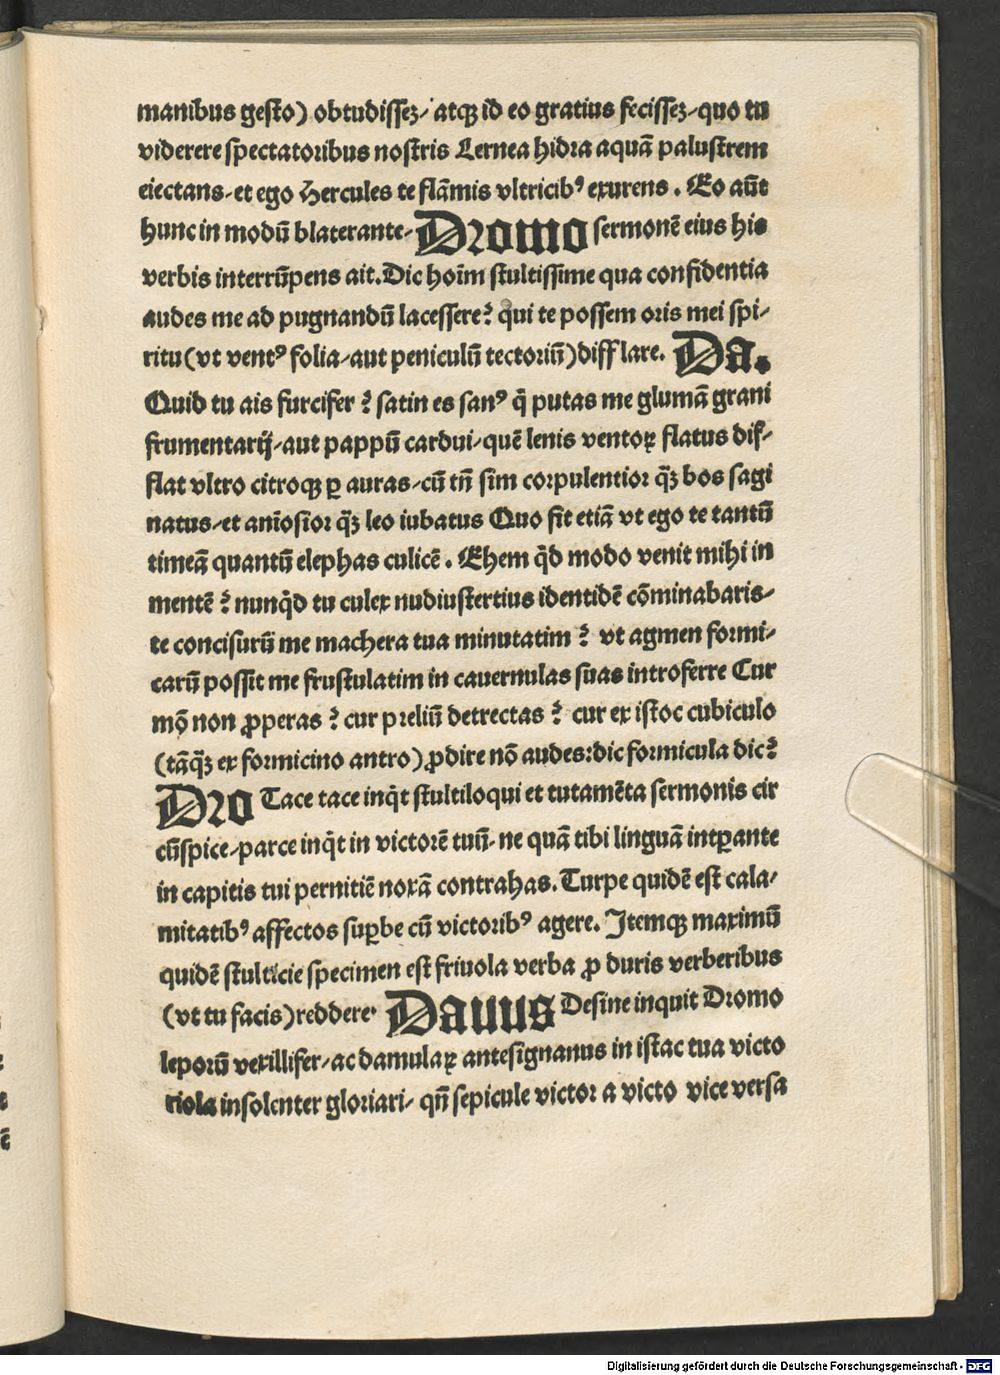 manibus gesto) obtudissez/ atqꝫ id eo gratius fecissez/quo tu
viderere spectatoribus nostris Lernea hidra aquā palustrem
eiectans/et ego Hercules te flāmis vltricibꝰ exurens. Eo aūt
hunc in modū blaterante/ Dromo sermonē eius his
verbis interrūpens ait. Dic hoīm stultissime qua confidentia
audes me ad pugnandū lacessere? qui te possem oris mei spi/
ritu (vt ventꝰ folia/aut peniculū tectoriū) difflare. Da.
Quid tu ais furcifer? satin es sanꝰ q̄ putas me glumā grani
frumentarij/aut pappū cardui/quē lenis ventoꝝ flatus dif/
flat vltro citroqꝫ ꝑ auras/cū tn̄ sim corpulentior q̄ꝫ bos sagi
natus/et anīosior q̄ꝫ leo iubatus Quo fit etiā vt ego te tantū
timeā quantū elephas culicē. Ehem q̄d modo venit mihi in
mentē? nunq̄d tu culex nudiustertius identidē cōminabaris/
te concisurū me machera tua minutatim? vt agmen formi/
carū possit me frustulatim in cauernulas suas introferre Cur
mō non ꝓperas? cur preliū detrectas? cur ex istoc cubiculo
(tāq̄ꝫ ex formicino antro) ꝓdire nō audes: dic formicula dic?
Dro Tace tace inq̄t stultiloqui et tutamēta sermonis cir
cūspice/parce inq̄t in victorē tuū/ ne quā tibi linguā intꝑante
in capitis tui pernitiē noxā contrahas. Turpe quidē est cala/
mitatibꝰ affectos suꝑbe cū victoribꝰ agere. Itemqꝫ maximū
quidē stulticie specimen est friuola verba ꝓ duris verberibus
(vt tu facis) reddere. Dauus Desine inquit Dromo
leporū vexillifer/ac damulaꝝ antesignanus in istac tua victo
riola insolenter gloriari/ qn̄ sepicule victor a victo vice versa
Digitalisierung gefördert durch die Deutsche Forschungsgemeinschaft - DFG